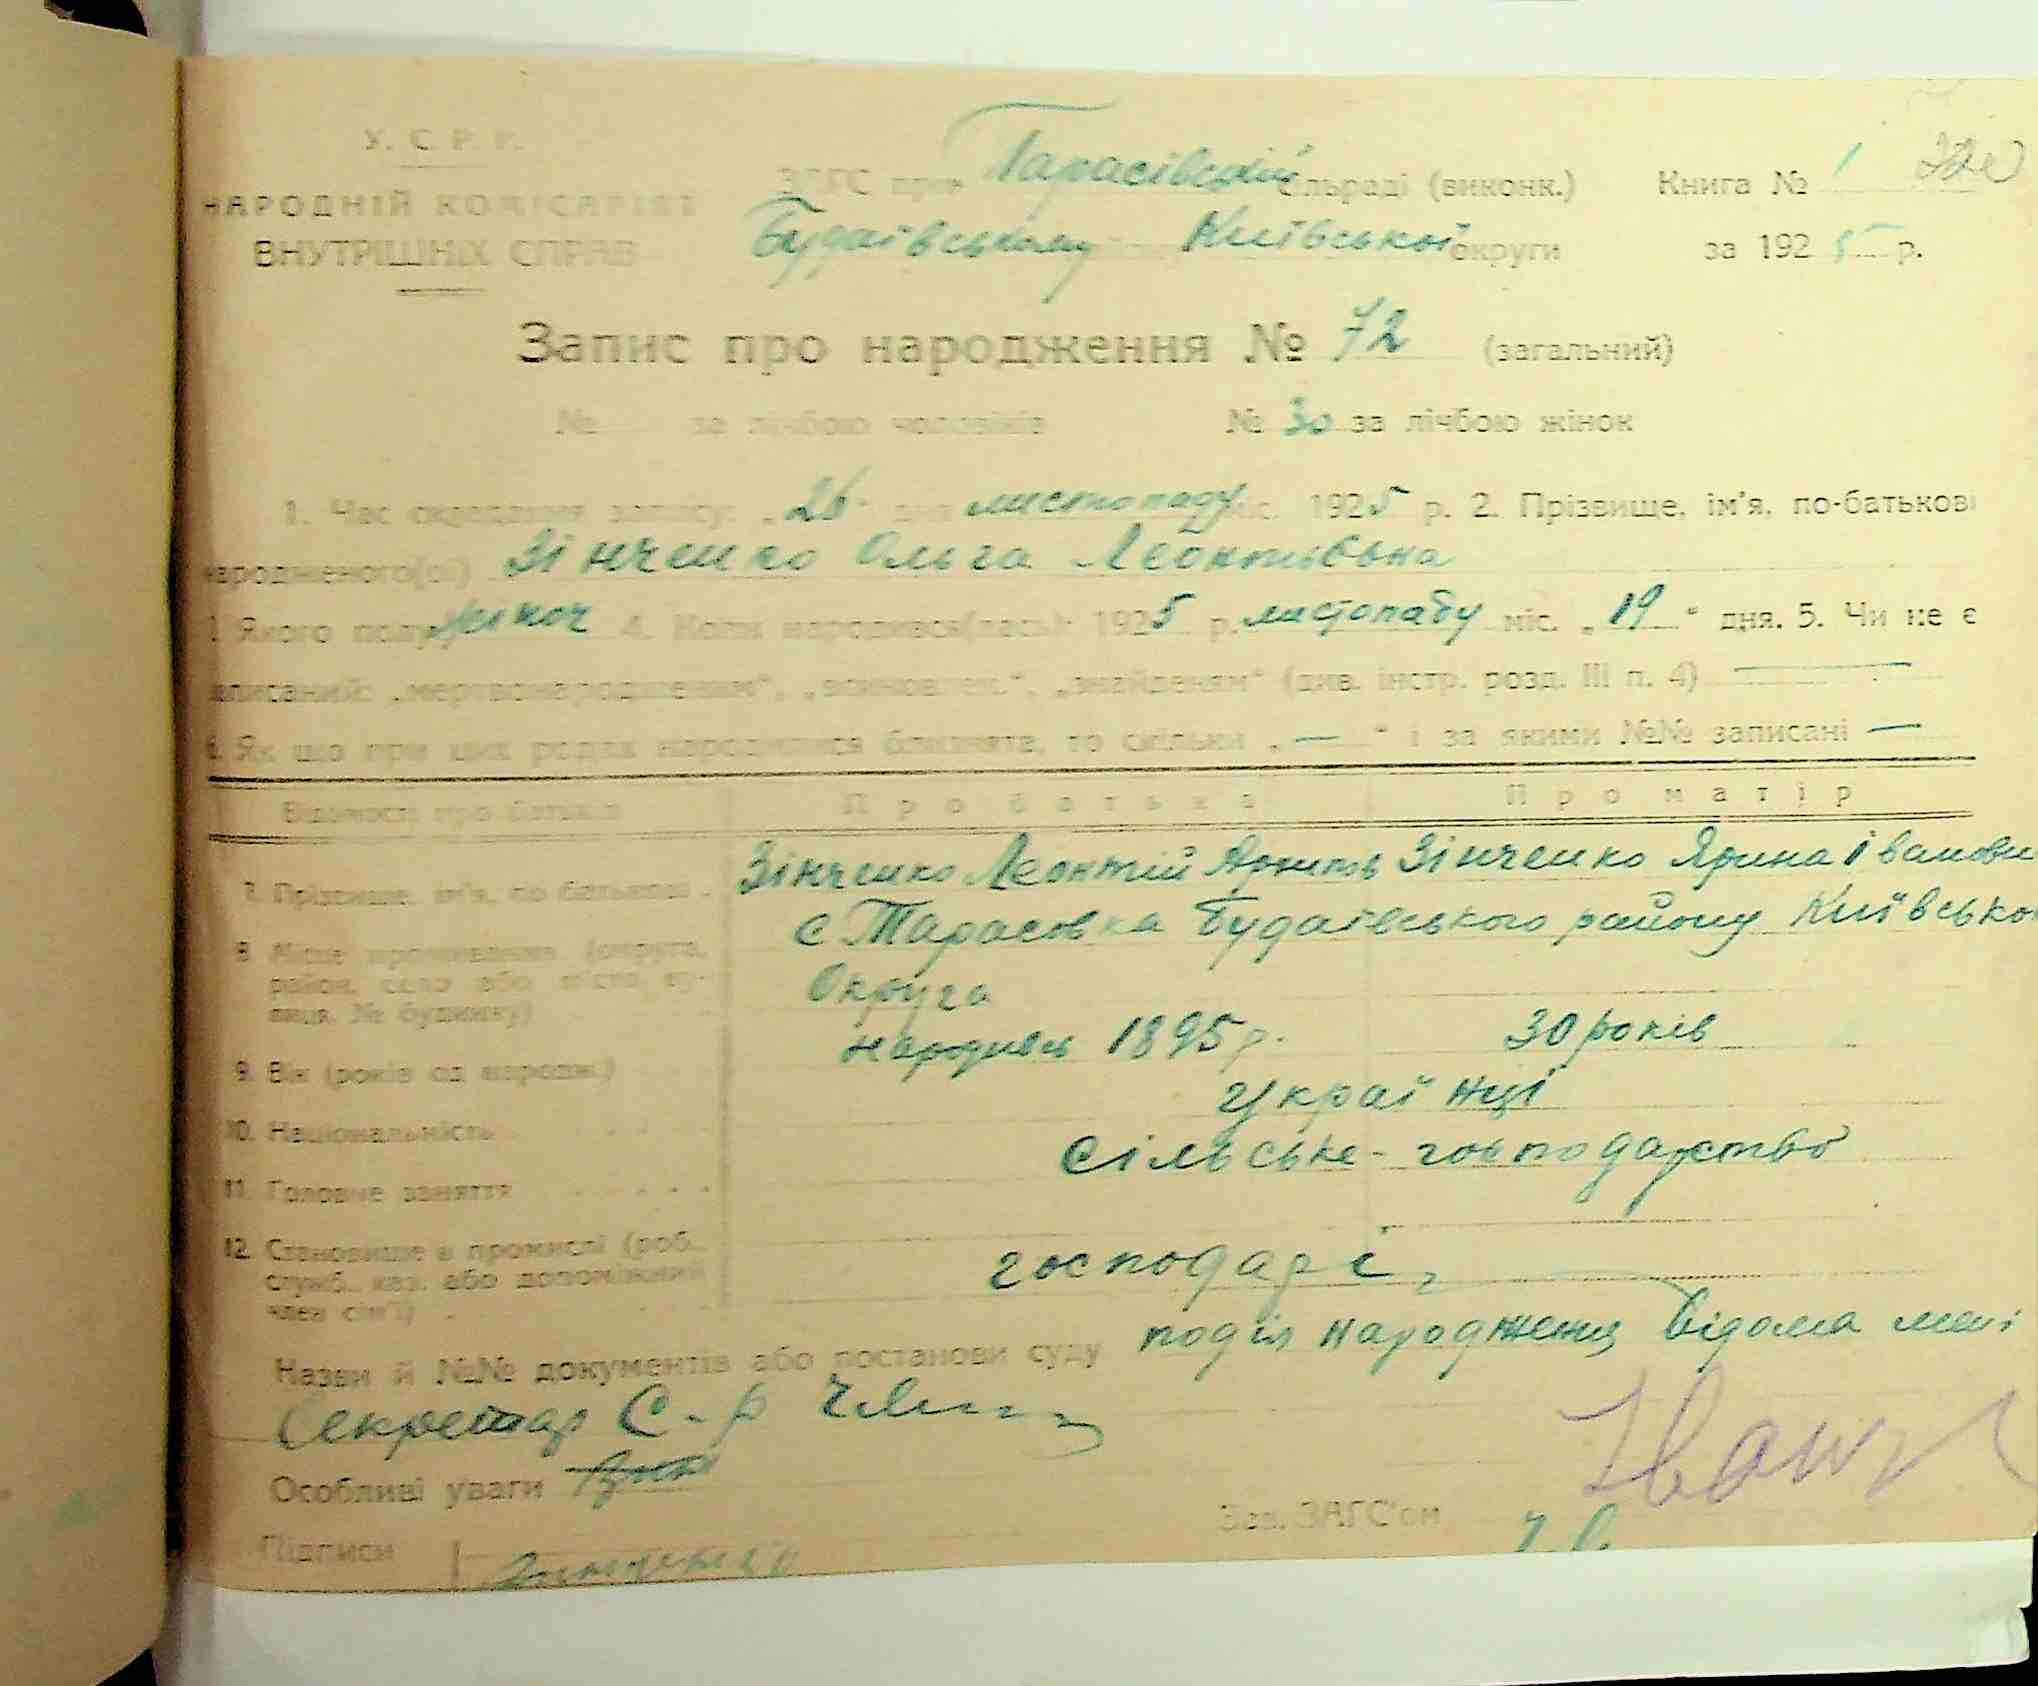 У. С. Р. Р.
НАРОДНІЙ КОМІСАРІЯТ
ВНУТРІШНІХ СПРАВ
ЗАГС при Тарасівській сільраді (виконк.)
Будаївському Київської округи
Книга № 1
за 1925 р.
Запис про народження № 72 (загальний)
№ за лічбою чоловіків № 30 за лічбою жінок
1. Час складання запису: „26“ дня листопаду міс. 1925 р. 2. Прізвище, ім'я, по-батькові
народженого(ої) Зінченко Ольга Леонтівна
3. Якого полу жіноч 4. Коли народився(лась): 1925 р. листопаду міс. „19“ дня. 5. Чи не є
записаний: „мертвонародженим“, „всиновлен.“, „знайденям“ (див. інстр. розд. III п. 4) —
6. Як що при цих родах народилися близнята, то скільки „—“ і за якими №№ записані —
Відомості про батьків Про батька Про матір
7. Прізвище, ім'я, по батькові . Зінченко Леонтій Зінченко Ярина Іванови
8. Місце проживання (округа, с Тарасовка Будаївського району Київсько
район, село або місто ву- Округа
лиця, № будинку)
9. Вік (років од народж.) народивсь 1895 р. 30 років
10. Національність українці
11. Головне заняття сільське-господарство
12. Становище в промислі (роб. господарі,
служб. хаз. або допоміжний
член сім'ї)
Назви й №№ документів або постанови суду подія народження відома мені
Секретар С-р
Особливі уваги
Зав. ЗАГС'ом
Підписи